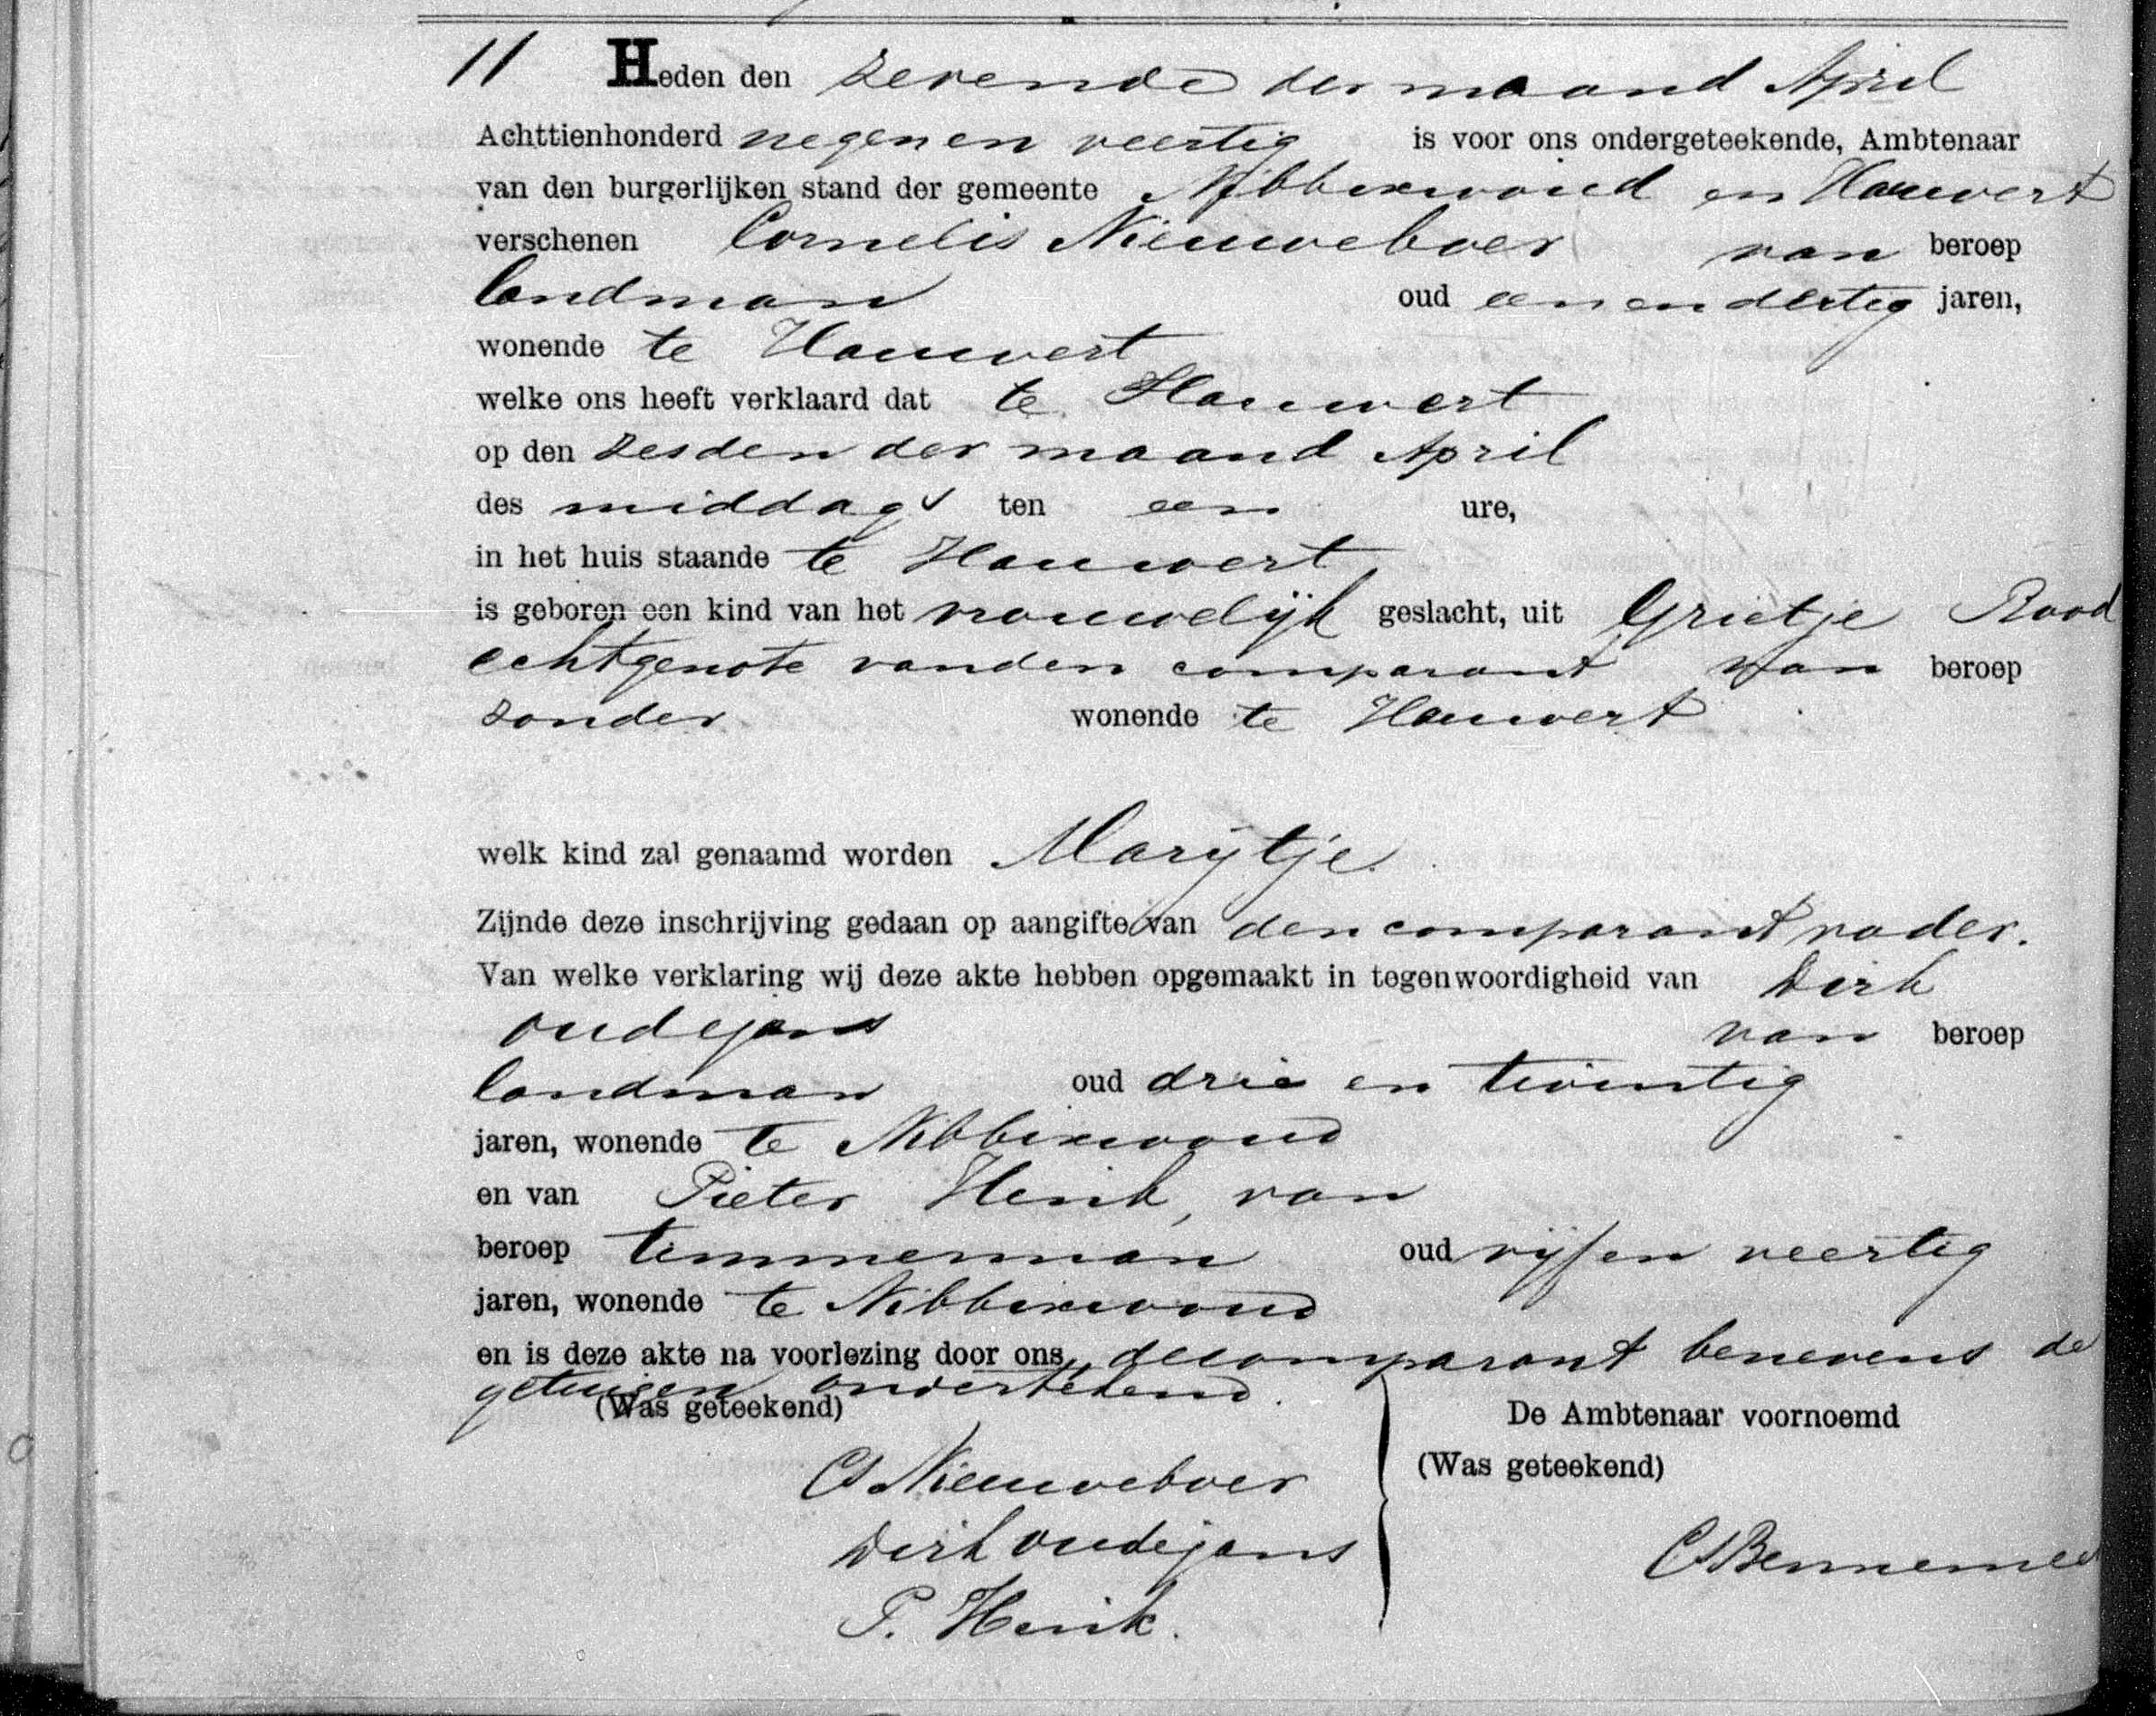 11 Heden den zevende der maand April
Achttienhonderd negen en veertig is voor ons ondergeteekende, Ambtenaar
van den burgerlijken stand der gemeente Nibbixwoud en Hauwert
verschenen Cornelis Nieuweboer van beroep
landman oud een en dertig jaren,
wonende te Hauwert
welke ons heeft verklaard dat te Hauwert
op den zesden der maand April
des middags ten een ure,
in het huis staande te Hauwert
is geboren een kind van het vrouwelijk geslacht, uit Grietje Rood
echtgenote van den comparant van beroep
zonder wonende te Hauwert
welk kind zal genaamd worden Marijtje
Zijnde deze inschrijving gedaan op aangifte van den comparant vader.
Van welke verklaring wij deze akte hebben opgemaakt in tegenwoordigheid van Dirk
oudejans van beroep
landman oud drie en twintig
jaren, wonende te Nibbixwoud
en van Pieter Henik, van
beroep timmerman oud vijf en veertig
jaren, wonende te Nibbixwoud
en is deze akte na voorlezing door ons, de comparant benevens de
getuigen ondertekend.
(Was geteekend) De Ambtenaar voornoemd
(Was geteekend)
Cs Nieuweboer
Dirk oudejans
P. Henik.